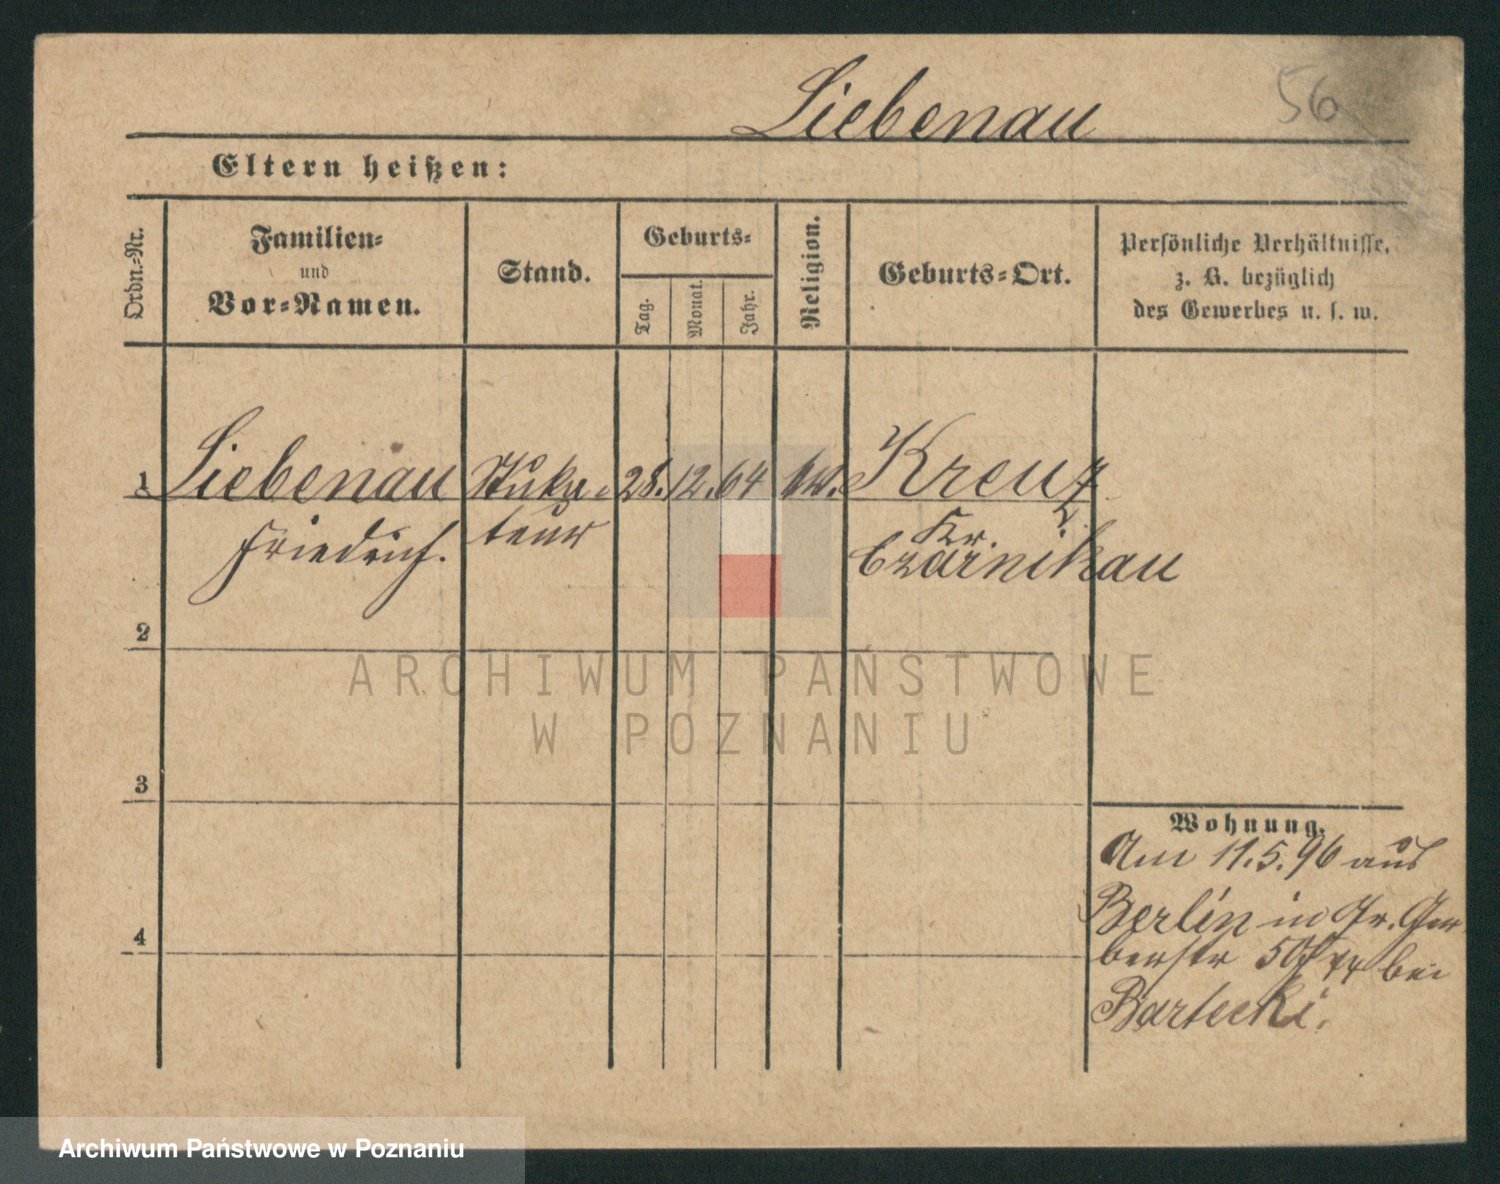 Liebenau
56
Eltern heißen:
Ordn.-Nr.
Familien-
und
Vor-Namen.
Stand.
Geburts-
Tag.
Monat.
Jahr.
Religion.
Geburts-Ort.
Persönliche Verhältnisse,
z. B. bezüglich
des Gewerbes u. s. w.
1 Liebenau Stuka- 28. 12. 64 Kreuz
Friedrich. teur Kr.
Czarnikau
2
ARCHIWUM PAŃSTWOWE
W POZNANIU
3
4
Wohnung.
Am 11.5.96 aus
Berlin in Gr. Ger
berstr 50 bei
Bartecki.
Archiwum Państwowe w Poznaniu